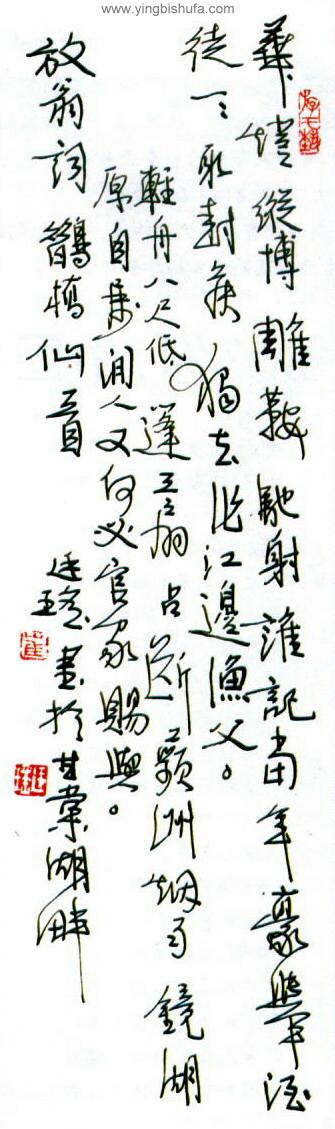 www.yingbishufa.com
華燈縱博雕鞍馳射誰記當年豪舉酒
徒一一取封侯獨去作江邊漁父。
輕舟八尺低蓬三扇占断蘋洲烟雨鏡湖
原自属闲人又何必官家賜與。
放翁詞鵲橋仙一首
廷瑶書於甘棠湖畔